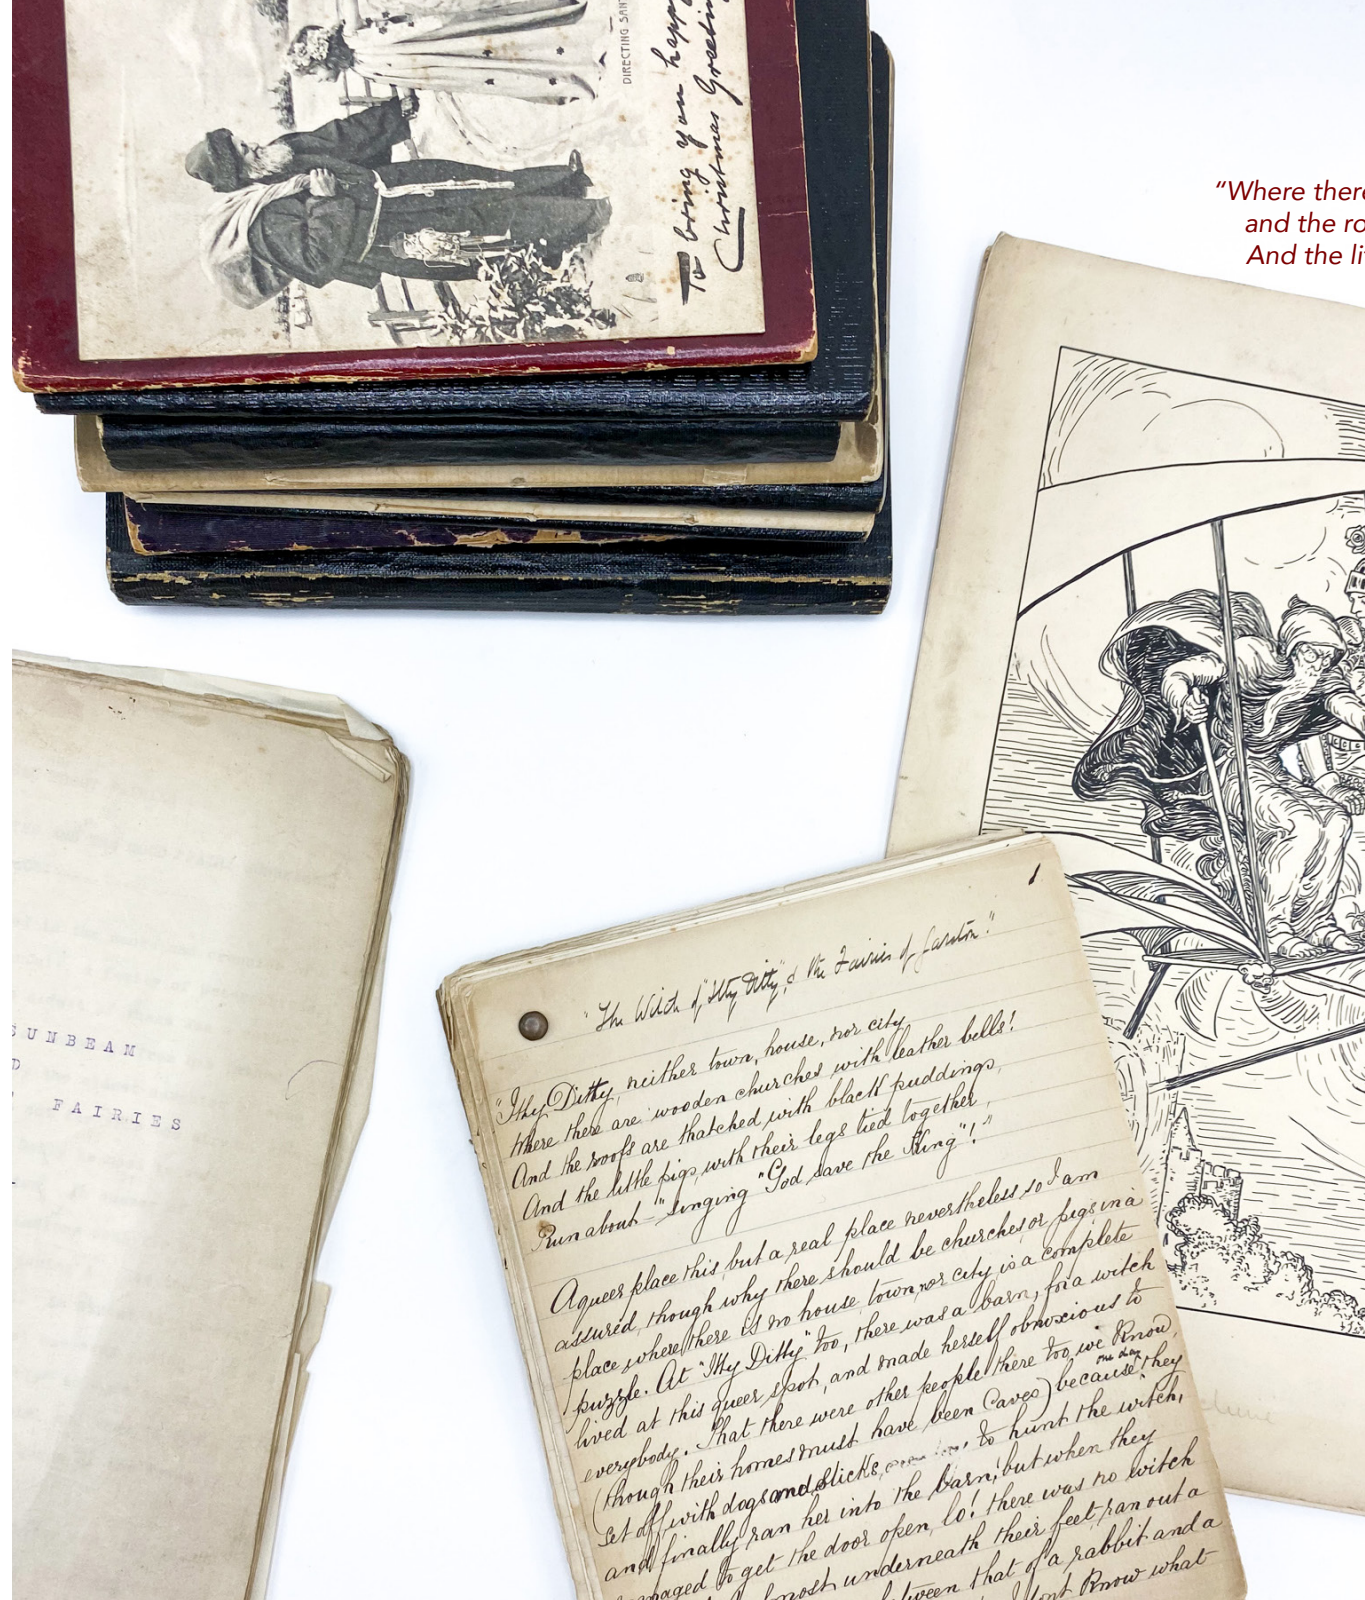 DIRECTING SAN
To bring you happ
Christmas Greetin
"Where there
and the ro
And the li
SUNBEAM
D
FAIRIES
1
"The Witch of "Itty Ditty", & the Fairies of
"Itty Ditty, neither town, house, nor city
Where there are wooden churches with leather bells!
And the roofs are thatched with black puddings,
And the little pigs, with their legs tied together,
Run about – "singing "God save the King"!"
A queer place this, but a real place nevertheless, so I am
assured, though why there should be churches or pigs in a
place where there is no house, town, nor city, is a complete
puzzle. At "Itty Ditty" too, there was a barn, for a witch
lived at this queer spot, and made herself obnoxious to
everybody. That there were other people there too, we know,
(though their homes must have been Caves) because one day they
set off with dogs and sticks, to hunt the witch,
and finally ran her into the barn; but when they
managed to get the door open, lo! there was no witch
almost underneath their feet, ran out a
between that of a rabbit and a
I don't know what